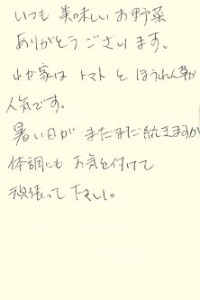 いつも 美味しいお野菜
ありがとうございます。
わが家は トマト と ほうれん草が
人気です。
暑い日が まだまだ続きますが
体調にも お気を付けて
頑張って下さい。